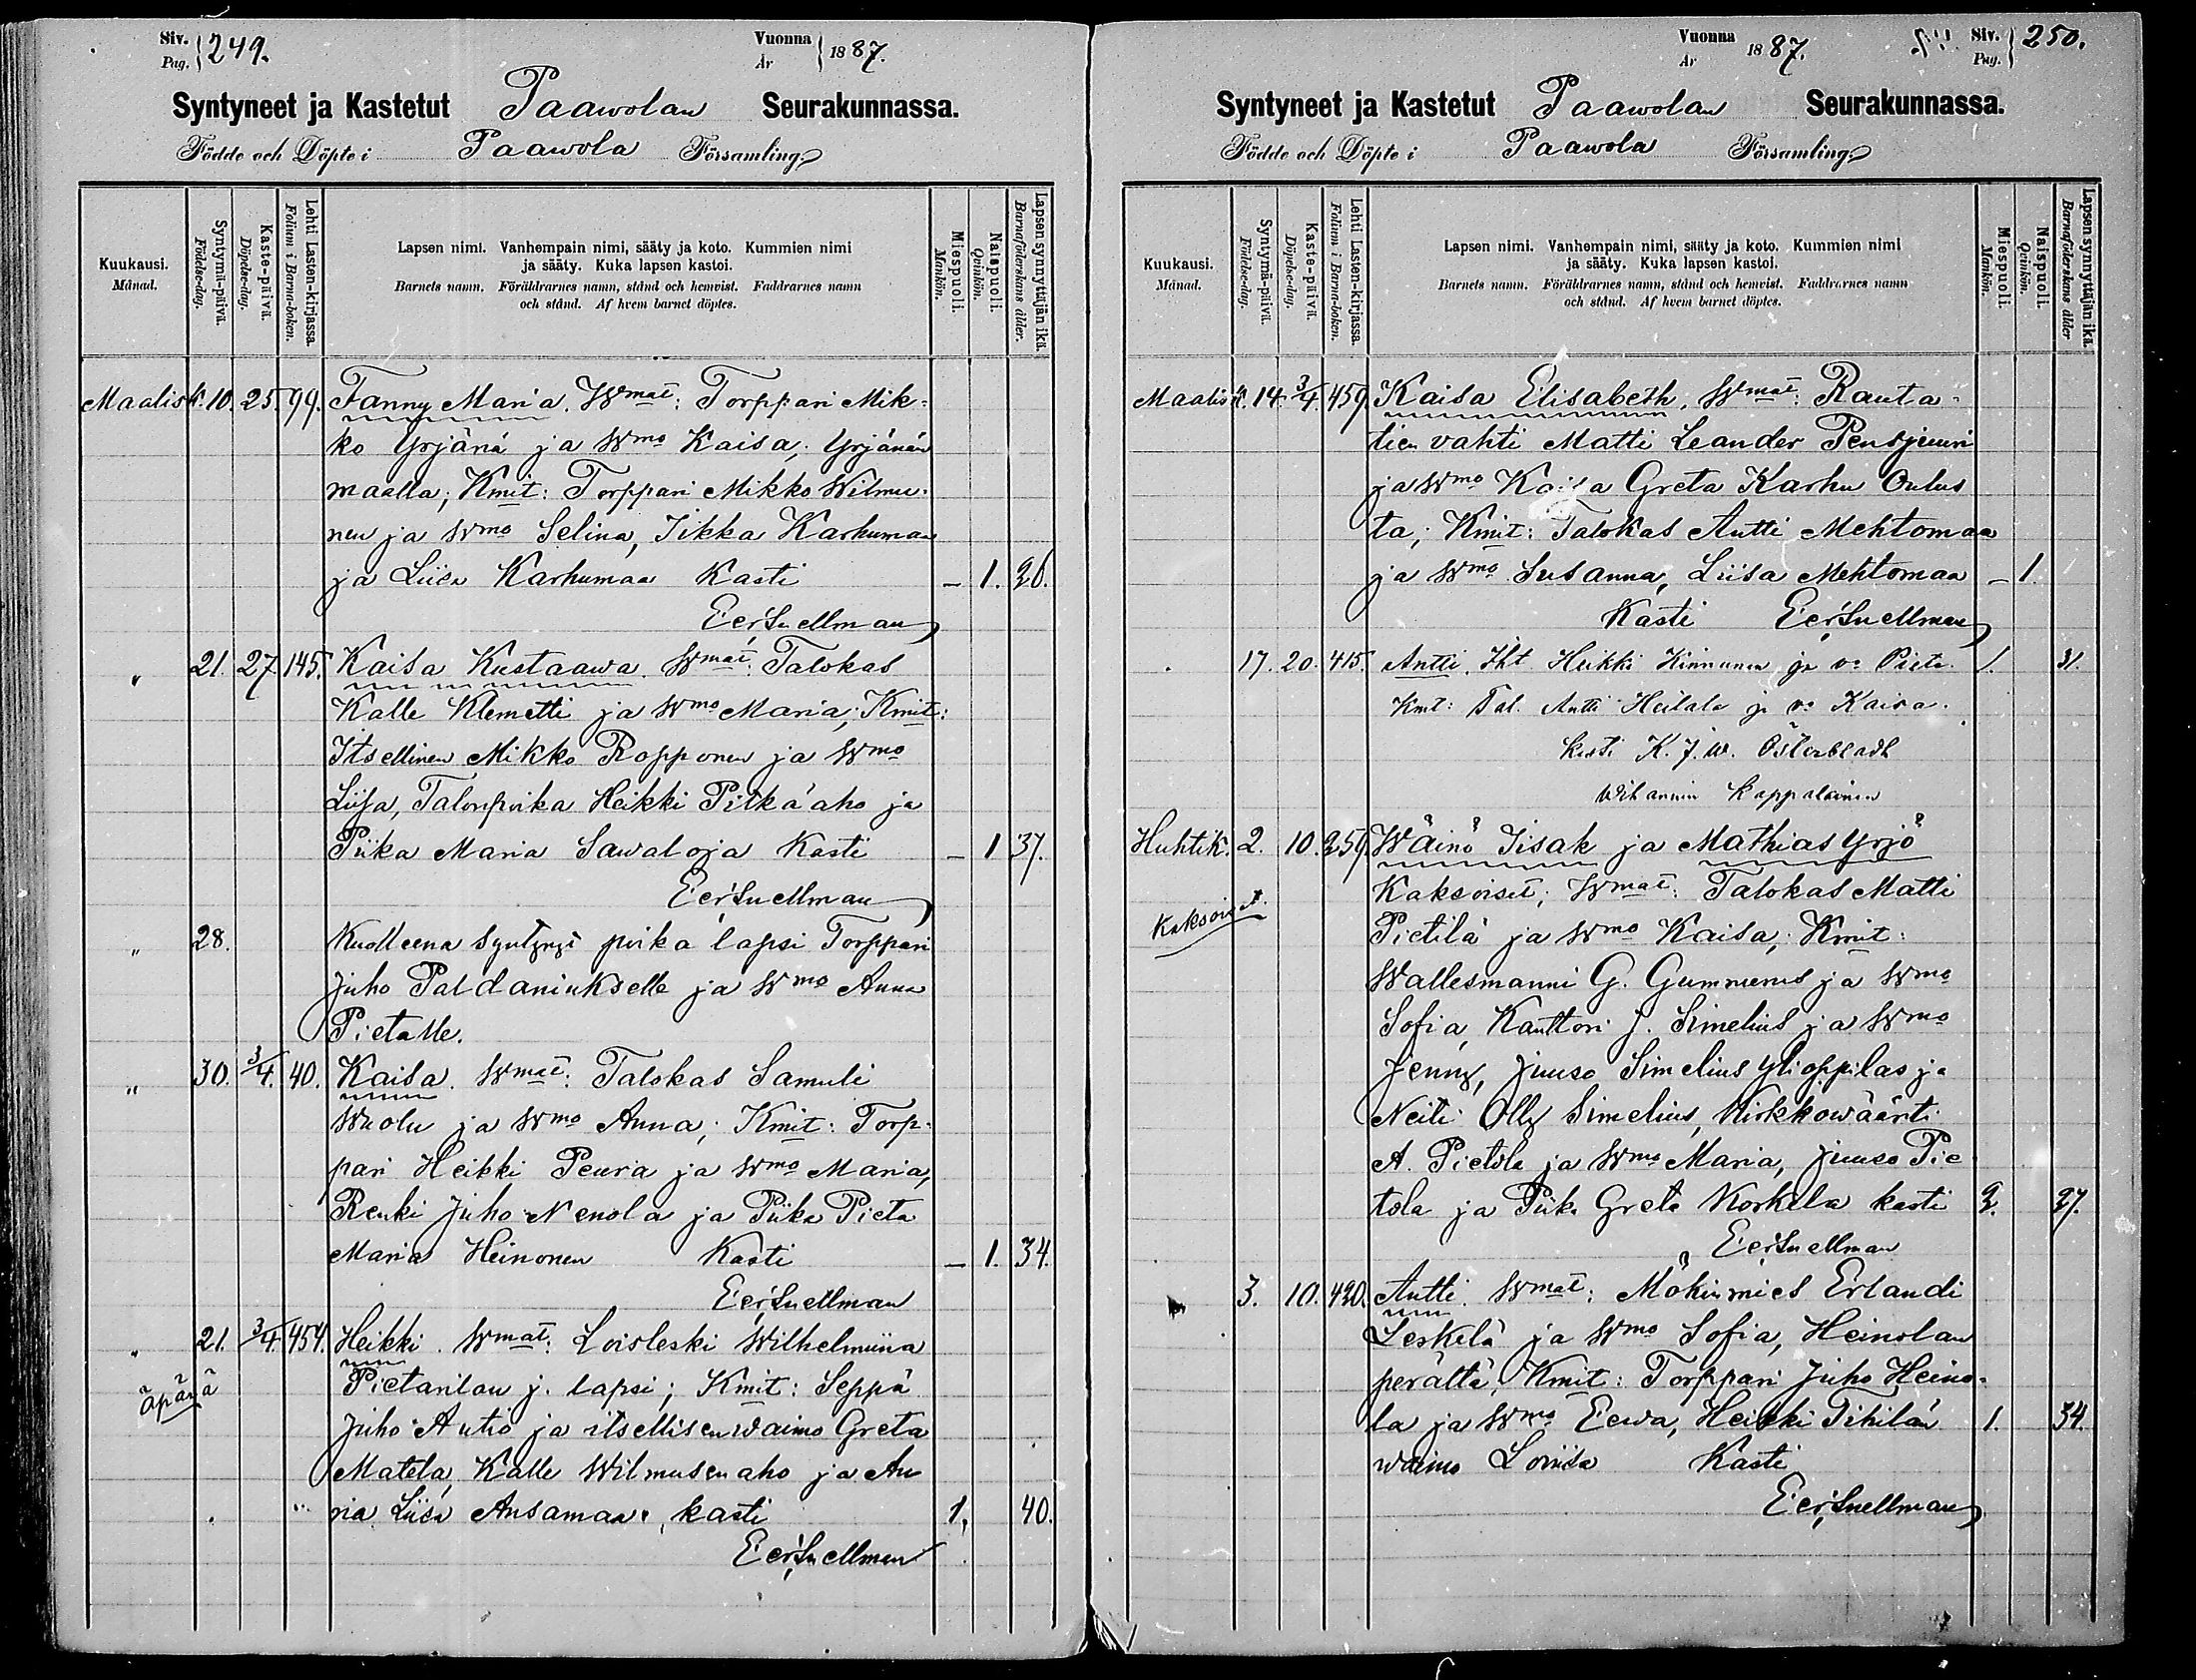 Siv. 249.
Pag.
Vuonna 1887.
År
Syntyneet ja Kastetut Paawolan Seurakunnassa.
Födde och Döpte i Paawola Församling
Kuukausi.
Månad.
Syntymä-päivä.
Födelse-dag.
Kaste-päivä.
Döpelse-dag.
Lehti Lasten-kirjassa.
Folium i Barna-boken.
Lapsen nimi. Vanhempain nimi, sääty ja koto. Kummien nimi
ja sääty. Kuka lapsen kastoi.
Barnets namn. Föräldrarnes namn, stånd och hemvist. Faddrarnes namn
och stånd. Af hvem barnet döptes.
Miespuoli.
Mankön.
Naispuoli.
Qvinkön.
Lapsen synnyttäjän ikä.
Barnaföderskans ålder.
Maalisk. 10. 25. 99. Fanny Maria. Wmat: Torppari Mik-
ko Yrjänä ja Wmo Kaisa, Yrjänän
maalla; Kmit: Torppari Mikko Wilmu-
nen ja Wmo Selina, Iikka Karhumaa
ja Liisa Karhumaa Kasti – 1. 26.
Eer. Snellman
" 21. 27. 145. Kaisa Kustaawa. Wmat: Talokas
Kalle Klemetti ja Wmo Maria; Kmit:
Itsellinen Mikko Ropponen ja Wmo
Liisa, Talonpoika Heikki Pitkäaho ja
Piika Maria Sawaloja Kasti – 1 37.
Eer. Snellman
" 28. Kuolleena syntynyt poika lapsi Torppari
Juho Paldaniukselle ja Wmo Anna
Pietalle.
" 30. 3/4. 40. Kaisa. Wmat: Talokas Samuli
Wuolu ja Wmo Anna; Kmit: Torp-
pari Heikki Peura ja Wmo Maria,
Renki Juho Nenola ja Piika Pieta
Maria Heinonen Kasti – 1. 34.
Eer. Snellman
" 21. 3/4. 454. Heikki. Wmat: Loisleski Wilhelmiina
äpärä Pietarilan j. lapsi; Kmit: Seppä
Juho Autio ja itsellisen waimo Greta
Matela, Kalle Wilmusenaho ja An
na Liisa Ansamaa, kasti 1, 40.
Eer. Snellman
Vuonna 1887.
År
Siv. 250.
Pag.
Syntyneet ja Kastetut Paawolan Seurakunnassa.
Födde och Döpte i Paawola Församling
Kuukausi.
Månad.
Syntymä-päivä.
Födelse-dag.
Kaste-päivä.
Döpelse-dag.
Lehti Lasten-kirjassa.
Folium i Barna-boken.
Lapsen nimi. Vanhempain nimi, sääty ja koto. Kummien nimi
ja sääty. Kuka lapsen kastoi.
Barnets namn. Föräldrarnes namn, stånd och hemvist. Faddrarnes namn
och stånd. Af hvem barnet döptes.
Miespuoli.
Mankön.
Naispuoli.
Qvinkön.
Lapsen synnyttäjän ikä.
Barnaföderskans ålder
Maalisk. 14. 3/4. 459. Kaisa Elisabeth. Wmat: Rauta-
tien vahti Matti Leander Pensjuuri
ja Wmo Kaisa Greta Karhu Oulus
ta; Kmit: Talokas Antti Mehtomaa
ja Wmo Susanna, Liisa Mehtomaa – 1.
Kasti Eer. Snellman
17. 20. 415. Antti. Iht Heikki Kinnunen ja vo Pieta. 1. 31.
Kmt: Tal. Antti Heilala ja vo Kaisa.
kasti K. J. W. Österbladh
Wihannin kappalainen
Huhtik. 2. 10. 259. Wäinö Iisak ja Mathias Yrjö
Kaksoiset; Wmat: Talokas Matti
Kaksoiset. Pietilä ja Wmo Kaisa; Kmit:
Wallesmanni G. Gummerus ja Wmo
Sofia, Kanttori J. Simelius ja Wmo
Jenny, Juuso Simelius ylioppilas ja
Neiti Olly Simelius, Kirkkowäärti
A. Pietola ja Wmo Maria, Juuso Pie
tola ja Piika Greta Korkala kasti 2. 27.
Eer. Snellman
3. 10. 420. Antti. Wmat: Mökinmies Erlandi
Leskelä ja Wmo Sofia, Heinolan
perältä; Kmit: Torppari Juho Heino-
la ja Wmo Eewa, Heikki Tihilän 1. 34.
waimo Lowisa Kasti
Eer. Snellman